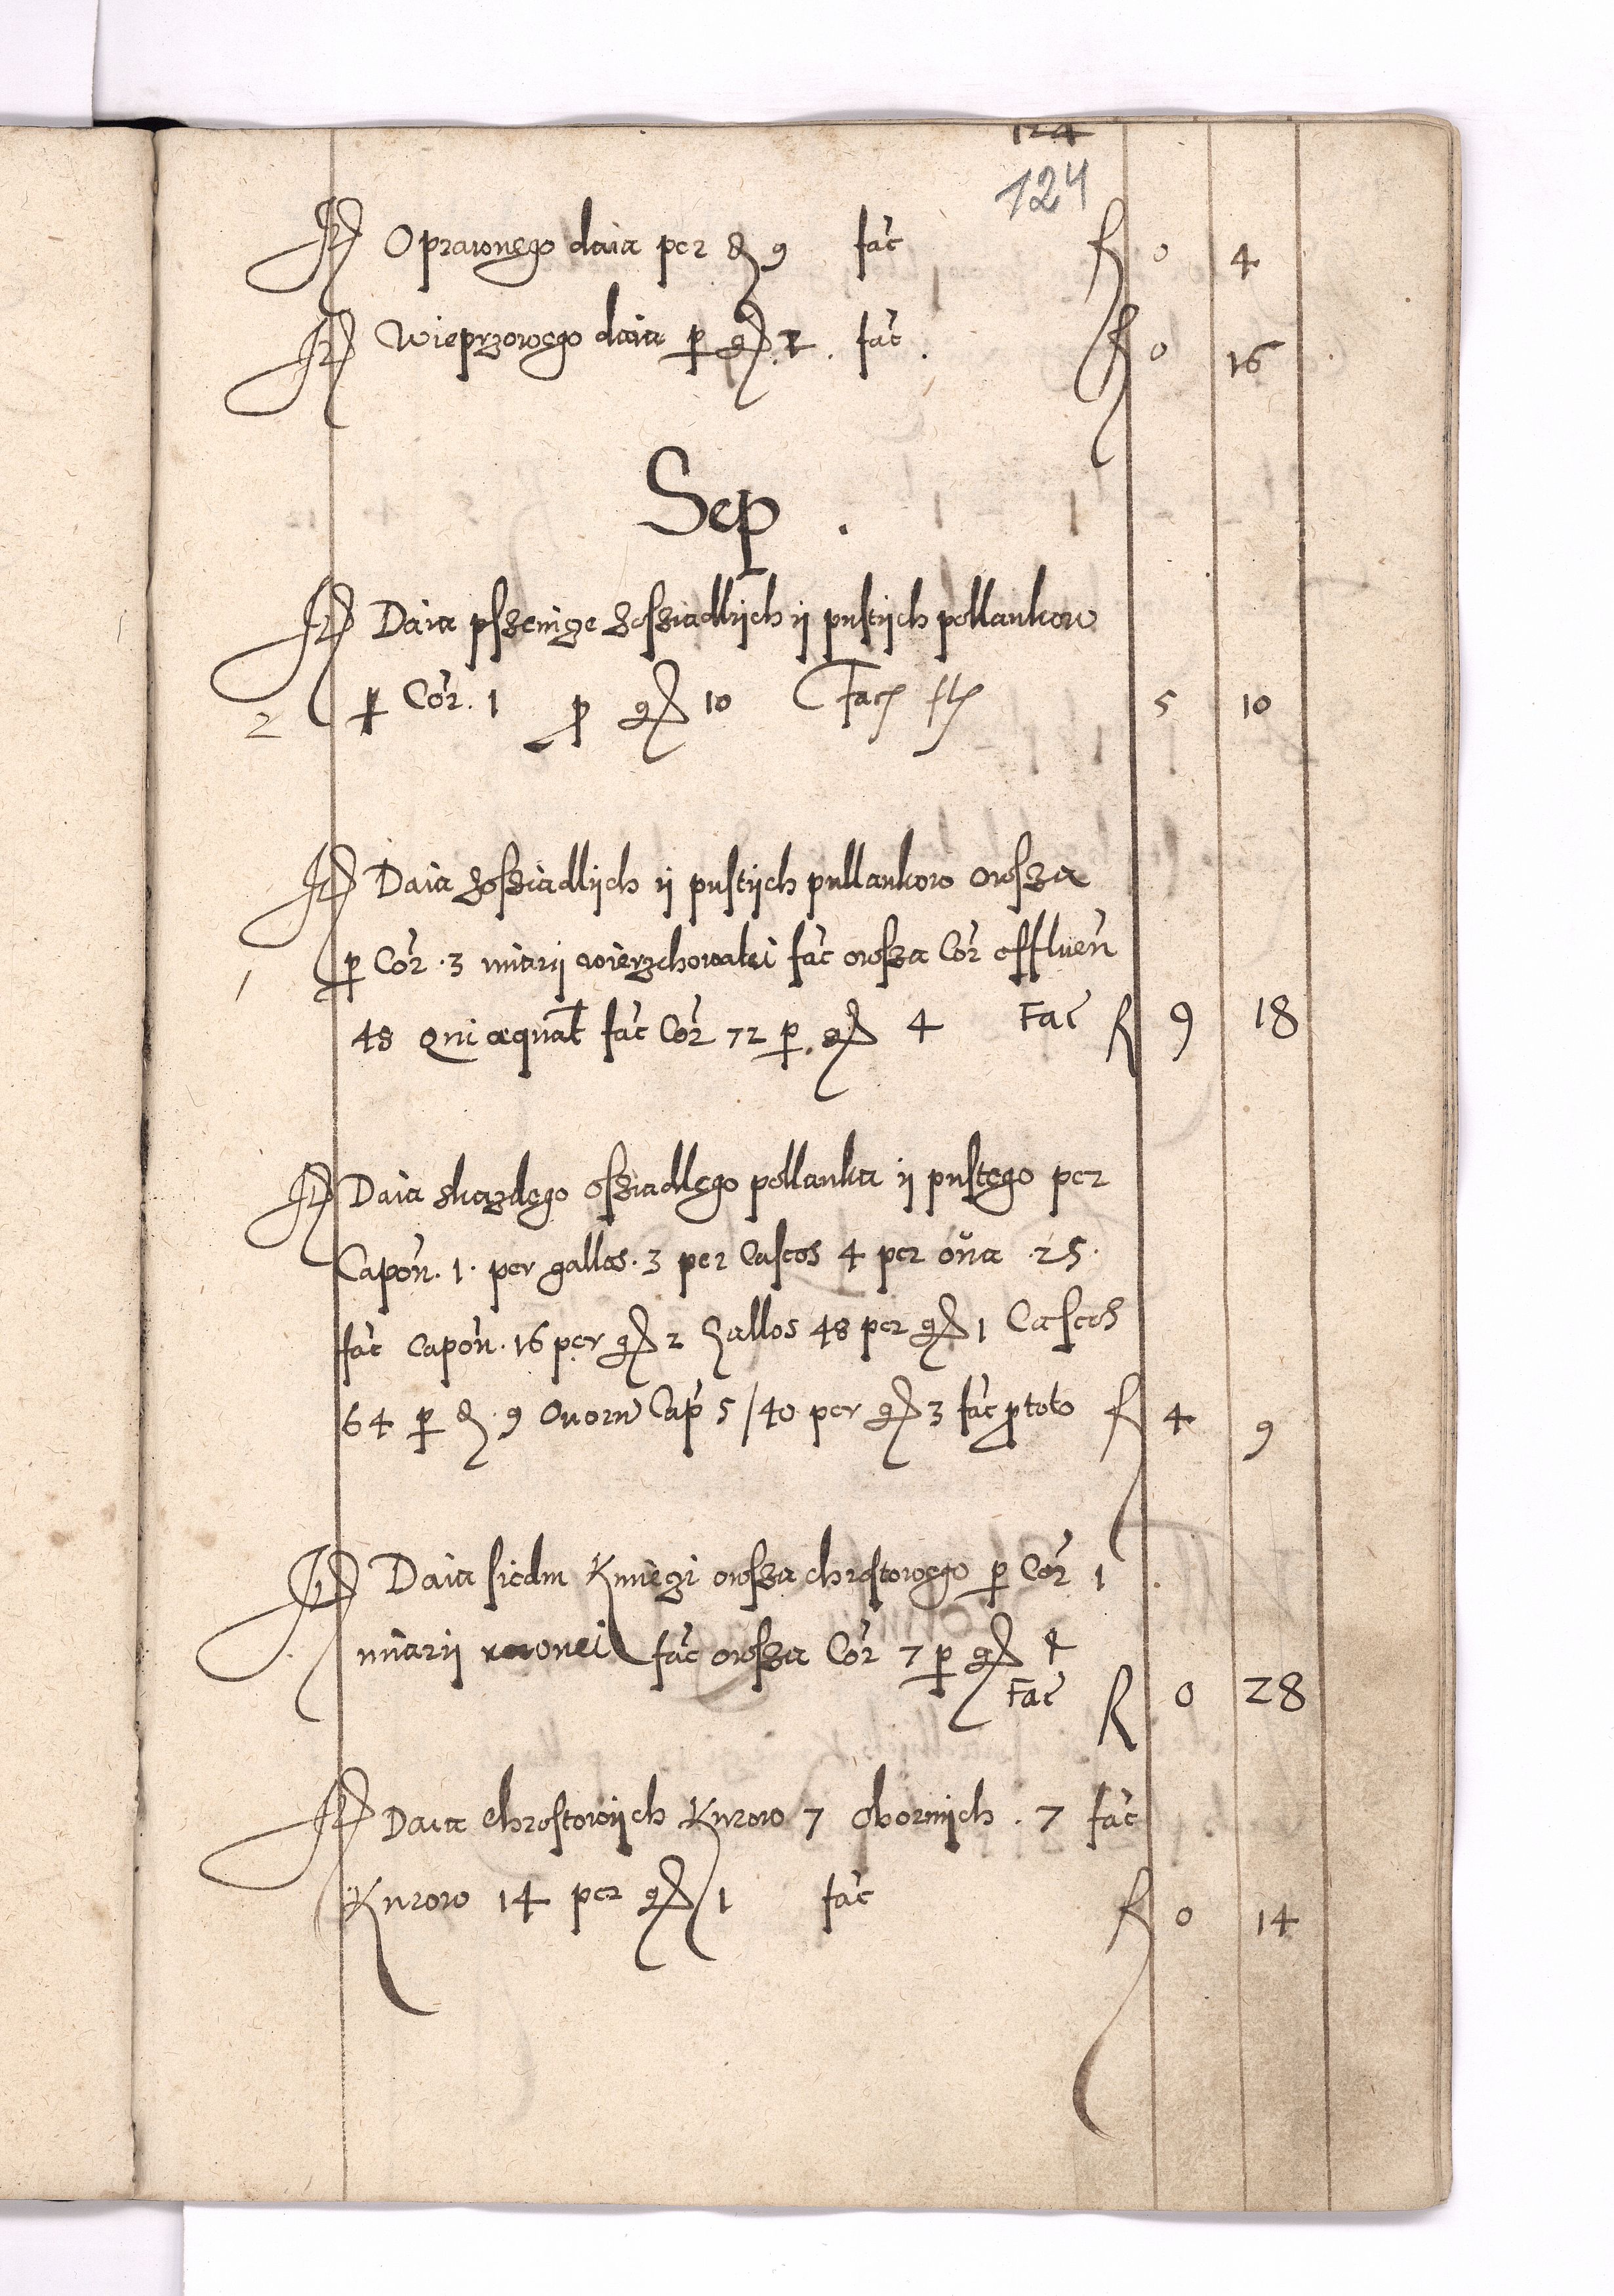 124
124
It Oprawnego daia per d 9 fac̃ fl 0 4
It Wieprzowego daia p gr 1. fac̃. fl 0 16
Sep.
It Daia pszenicze zossiadlijch ij pustijch pollankow
2 p Cor̃. 1 p gr 10 Fac fl 5 10
It Daia zossiadlijch ij pustijch pullankow owsza
1 p Cor̃. 3 miarij wierzchowatei fac̃ owsza Cor̃ effluen̄
48 qui æquat̃ fac̃ Cor̃ 72 p. gr 4 Fac̃ fl 9 18
It Daia skazdego osziadlego pollanka ij pustego per
Capon̄. 1. per gallos. 3 per Caseos 4 per oũa .25.
fac̃ Capon̄. 16 per gr 2 Gallos 48 per gr 1 Caseos
64 p d. 9 Ouorũ Cap 5/40 per gr 3 fac̃ p toto fl 4 9
It Daia siedm Kmiegi owsza chrostowego p Cor̃ 1
miarij rownei fac̃ owsza Cor̃ 7 p gr 4
Fac̃ fl 0 28
It Daia Chrostowijch Kurow 7 obornijch. 7 fac̃
Kurow 14 per gr 1 fac̃ fl 0 14